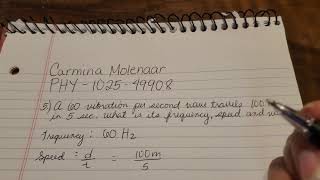 Carmina Molenaar
PHY - 1025 - 49908
5) A 60 vibration per second wave travels 100
in 5 sec. what is its frequency, speed and
Frequency : 60 Hz
Speed : d/t = 100m/5